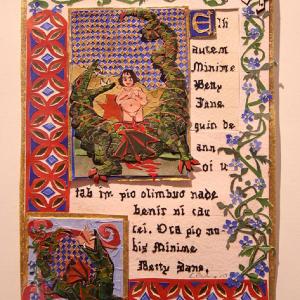 Elli
autem
Minime
Betty
Jane
quin de
ann
oi u
tab im pio olimbuo nade
benir ni cau
tei. Ora pio no
bis Minime
Betty Jane.